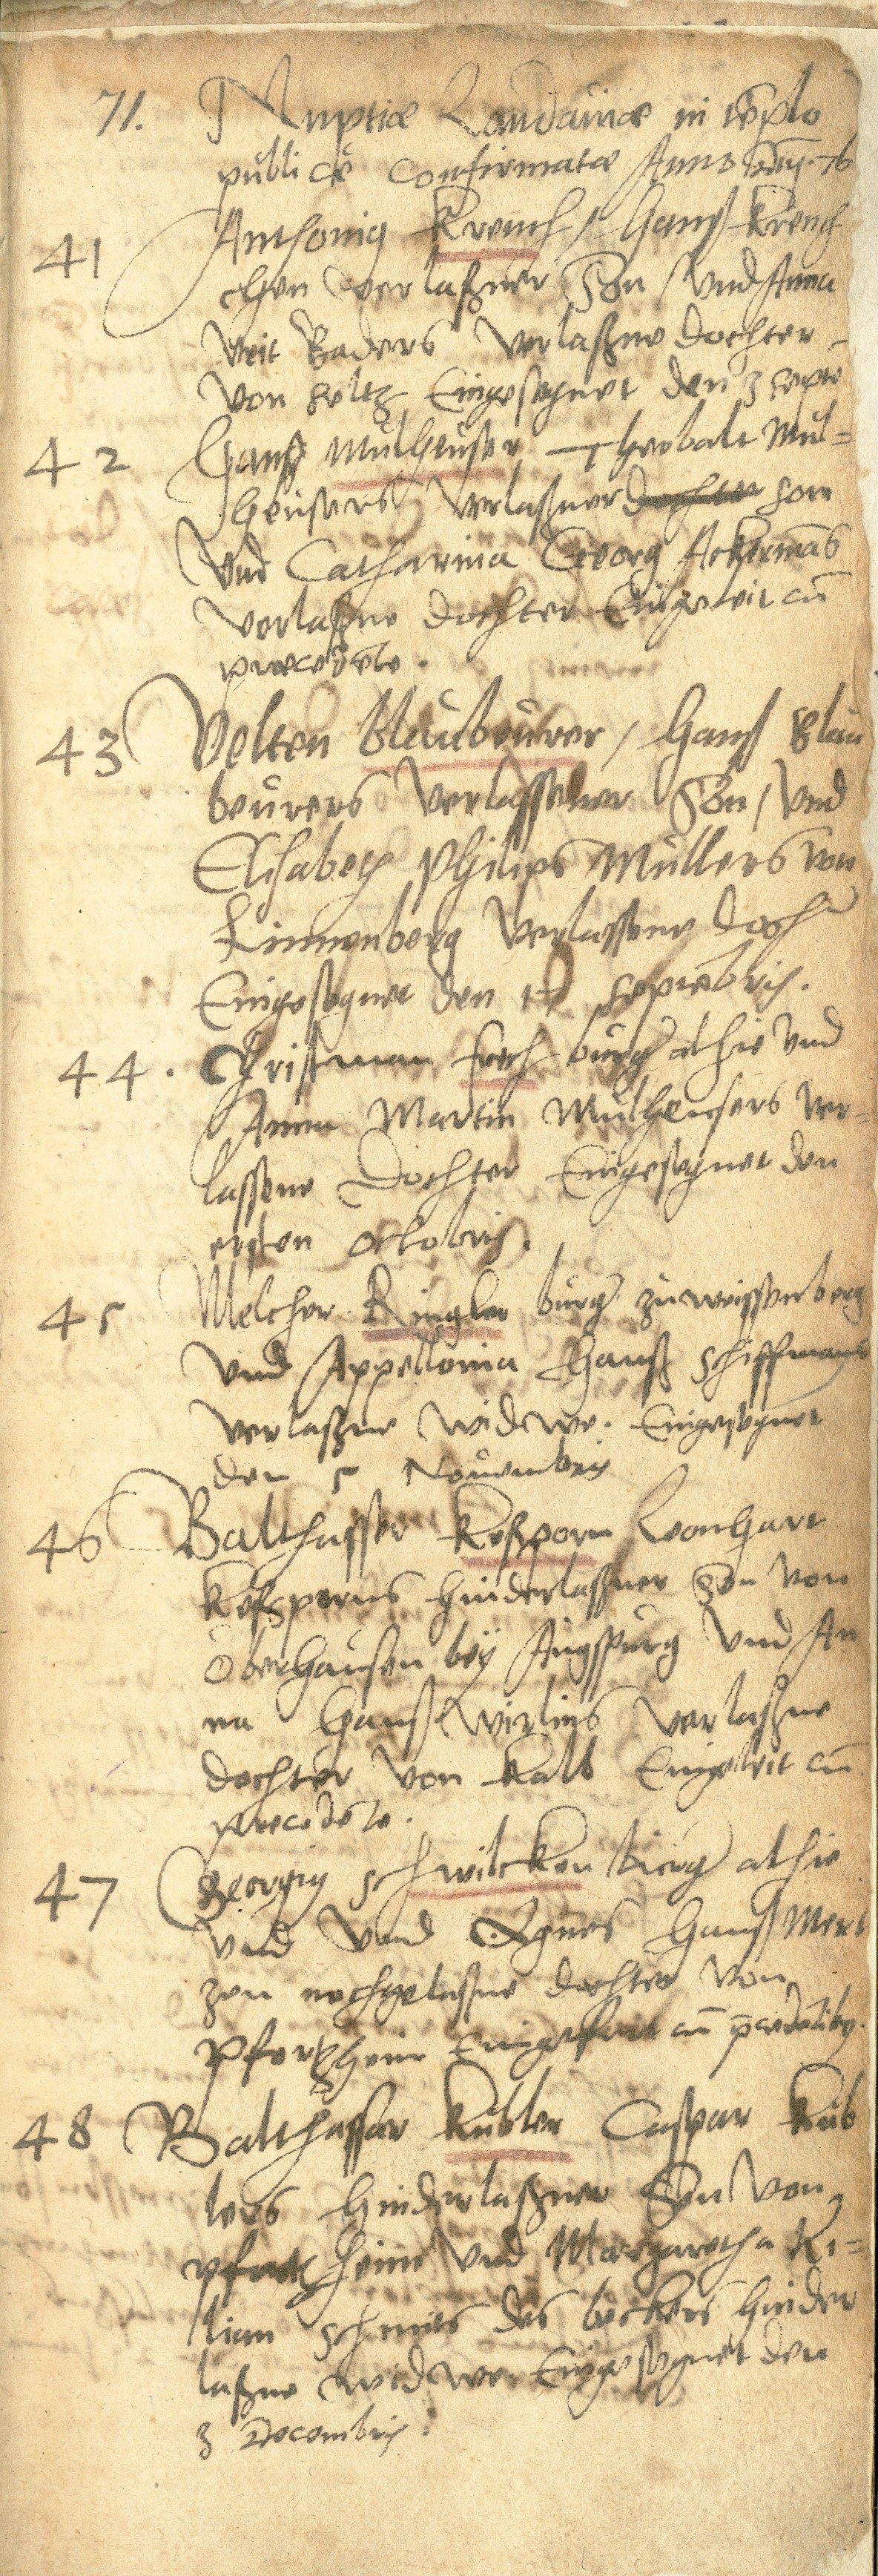 71. Nuptiæ Landavinæ in te͞plo
publicè confirmatæ Anno d͞ni. 76
41 Anthonig Krench / Hanß Krench
chen verlaßner Son / und Anna
Veit Baders verlaßne dochter
von Seltz Eingesegnet den 3 Septe
42 Hanß Mülheüser Theobalt Mül=
heüsers verlaßner dochter son
und Catharina Georg Ackerma͞s
verlaßne dochter Eingeleit cu͞
precede͞te.
43 Velten blaübeürer / Hanß Blaü
beürers verlassener Son / und
Elisabeth Philips Müllers von
Rinnenberg verlassene doch
Eingesegnet den 17 Septe͞bris.
44. Christman Frech bürg alhie und
Anna Martin Mülheüsers ver=
lassene Dochter Eingesegnet den
ersten Octobris.
45 Melcher Ringler bürg zü weissenberg
und Appellonia Hanß Schiffmans
verlaßne widwe. Eingesegnet
den 5 Novembris
46 Balthasser Keßporn Leonhart
Keßporns hinderlaßner Son von
Oberhaüsen beÿ Aügspürg und An
na Hanß Wirlins verlaßne
dochter von Kalb Eingeleit cu͞
precede͞te.
47 Georgig Schwilcken bürg alhie
und und Agnes Hanß Mert
zen nochgelaßne dochter von
Pfortzheim cu͞ p͞cede͞tib9.
48 Balthassar Kübler Caspar Küb
lers hinderlaßner Son von
Pfortzheim und Margaretha Ki=
lian Schmits des beckers hinder
laßne widwe Eingesegnet den
3 Decembris.